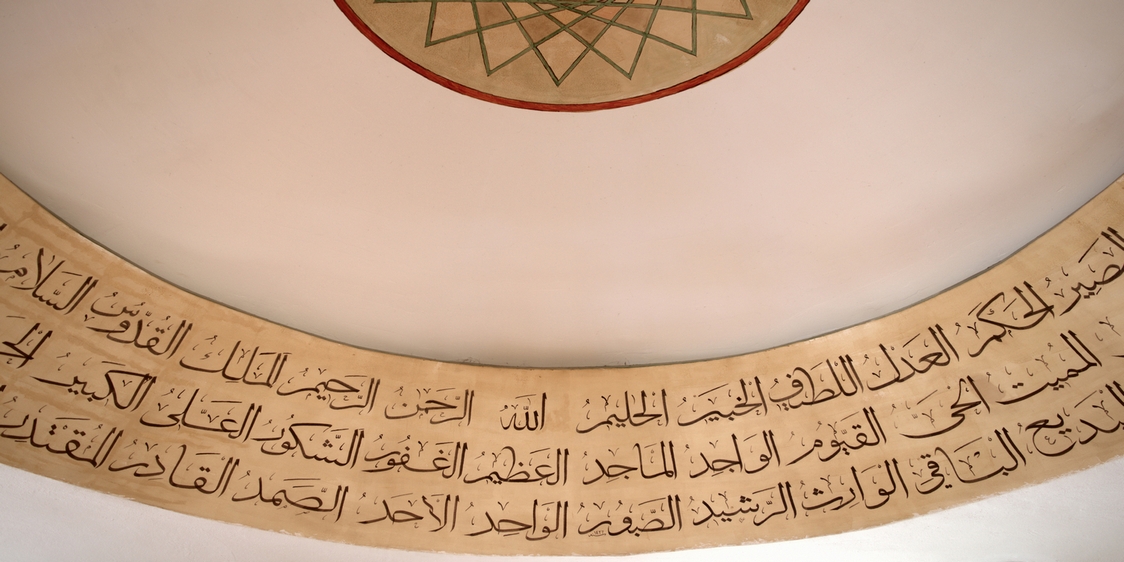 الحكم العدل اللطيف الخبير الحليم الله الرحمن الرحيم الملك القدوس السلام
المميت الحي القيوم الواجد الماجد العظيم الغفور الشكور العلي الكبير
البديع الباقي الوارث الرشيد الصبور الواحد الأحد الصمد القادر المقتدر